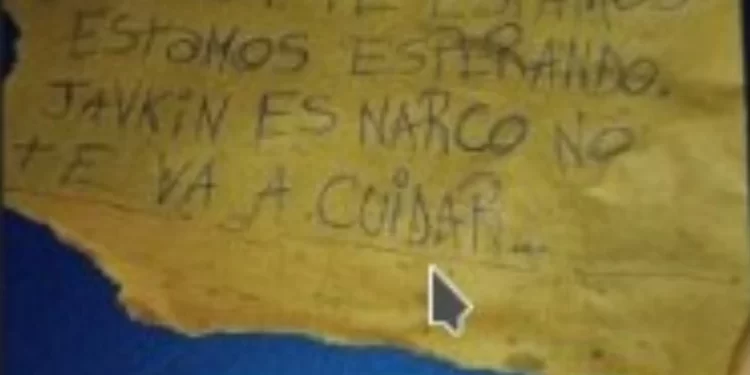 TE ESTAMOS
ESTAMOS ESPERANDO.
JAVKIN ES NARCO NO
TE VA A CUIDAR...